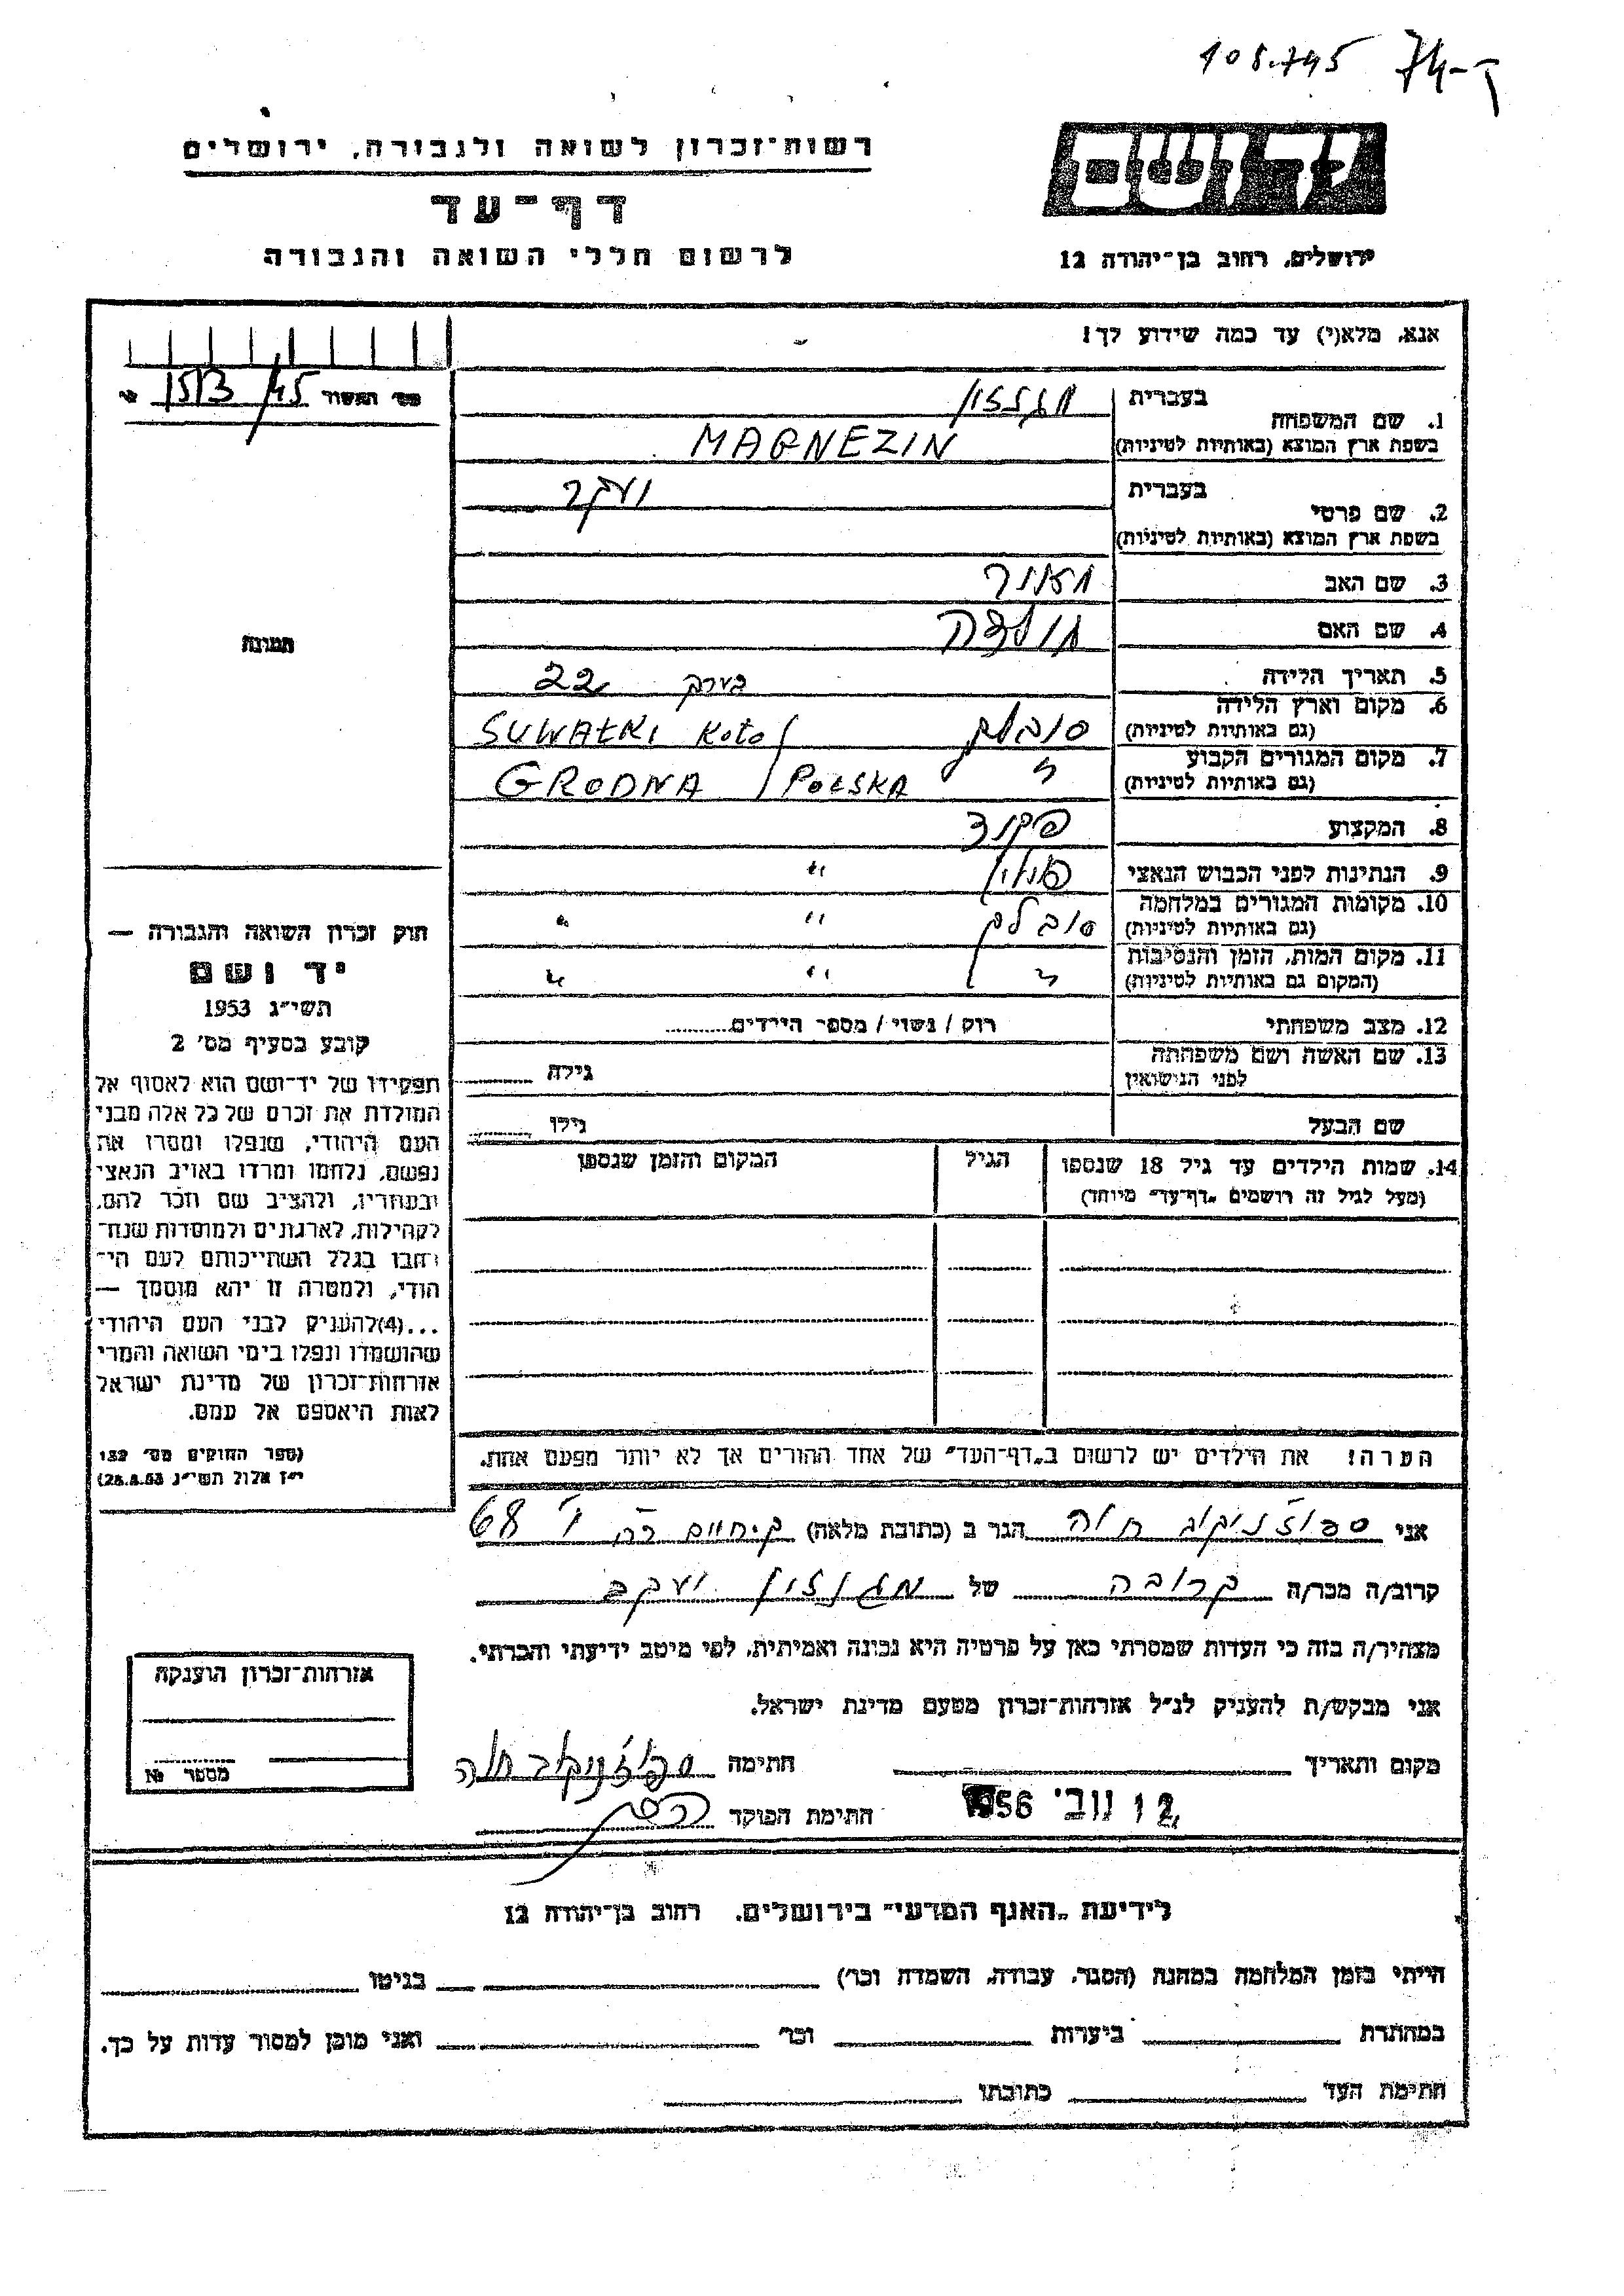 108.745 74-ק
רשות-זכרון לשואה ולגבורה, ירושלים
דף-עד
לרשום חללי השואה והגבורה
יד ושם
ירושלים, רחוב בן-יהודה 12
אנא, מלא(י) עד כמה שידוע לך!
מס' האשור 1513/45 №
1. שם המשפחה
בעברית
בשפת ארץ המוצא (באותיות לטיניות) MAGNEZIN
2. שם פרטי
בעברית יעקב
בשפת ארץ המוצא (באותיות לטיניות)
3. שם האב
4. שם האם
5. תאריך הלידה בערך 22
6. מקום וארץ הלידה
(גם באותיות לטיניות) SUWAŁKI Koto
7. מקום המגורים הקבוע
(גם באותיות לטיניות) " GRODNA / POŁSKA
8. המקצוע פקיד
9. הנתינות לפני הכבוש הנאצי פולין "
10. מקומות המגורים במלחמה
(גם באותיות לטיניות) " "
11. מקום המות, הזמן והנסיבות
(המקום גם באותיות לטיניות) " " "
12. מצב משפחתי רווק / נשוי / מספר הילדים
13. שם האשה ושם משפחתה
לפני הנישואין גילה
שם הבעל גילו
14. שמות הילדים עד גיל 18 שנספו הגיל המקום והזמן שנספו
(מעל לגיל זה רושמים "דף-עד" מיוחד)
הערה! את הילדים יש לרשום ב"דף-העד" של אחד ההורים אך לא יותר מפעם אחת.
תמונה
חוק זכרון השואה והגבורה —
יד ושם
תשי"ג 1953
קובע בסעיף מס' 2
תפקידו של יד-ושם הוא לאסוף אל
המולדת את זכרם של כל אלה מבני
העם היהודי, שנפלו ומסרו את
נפשם, נלחמו ומרדו באויב הנאצי
ובעוזריו, ולהציב שם וזכר להם,
לקהילות, לארגונים ולמוסדות שנח-
רבו בגלל השתייכותם לעם הי-
הודי, ולמטרה זו יהא מוסמך —
...(4)להעניק לבני העם היהודי
שהושמדו ונפלו בימי השואה והמרי
אזרחות-זכרון של מדינת ישראל
לאות היאספם אל עמם.
(ספר החוקים מס' 132
י"ז אלול תשי"ג 28.8.53)
אני חוה הגר ב (כתובת מלאה) ק. חיים 68
קרוב/ה מכר/ה קרובה של מגנזין יעקב
מצהיר/ה בזה כי העדות שמסרתי כאן על פרטיה היא נכונה ואמיתית, לפי מיטב ידיעתי והכרתי.
אני מבקש/ת להעניק לנ"ל אזרחות-זכרון מטעם מדינת ישראל.
מקום ותאריך חתימה חוה
12 נוב' 1956 חתימת הפוקד
אזרחות-זכרון הוענקה
מספר №
לידיעת "האגף המדעי" בירושלים, רחוב בן-יהודה 12
הייתי בזמן המלחמה במחנה (הסגר, עבודה, השמדה וכו') בגיטו
במחתרת ביערות וכו' ואני מוכן למסור עדות על כך.
חתימת העד כתובתו